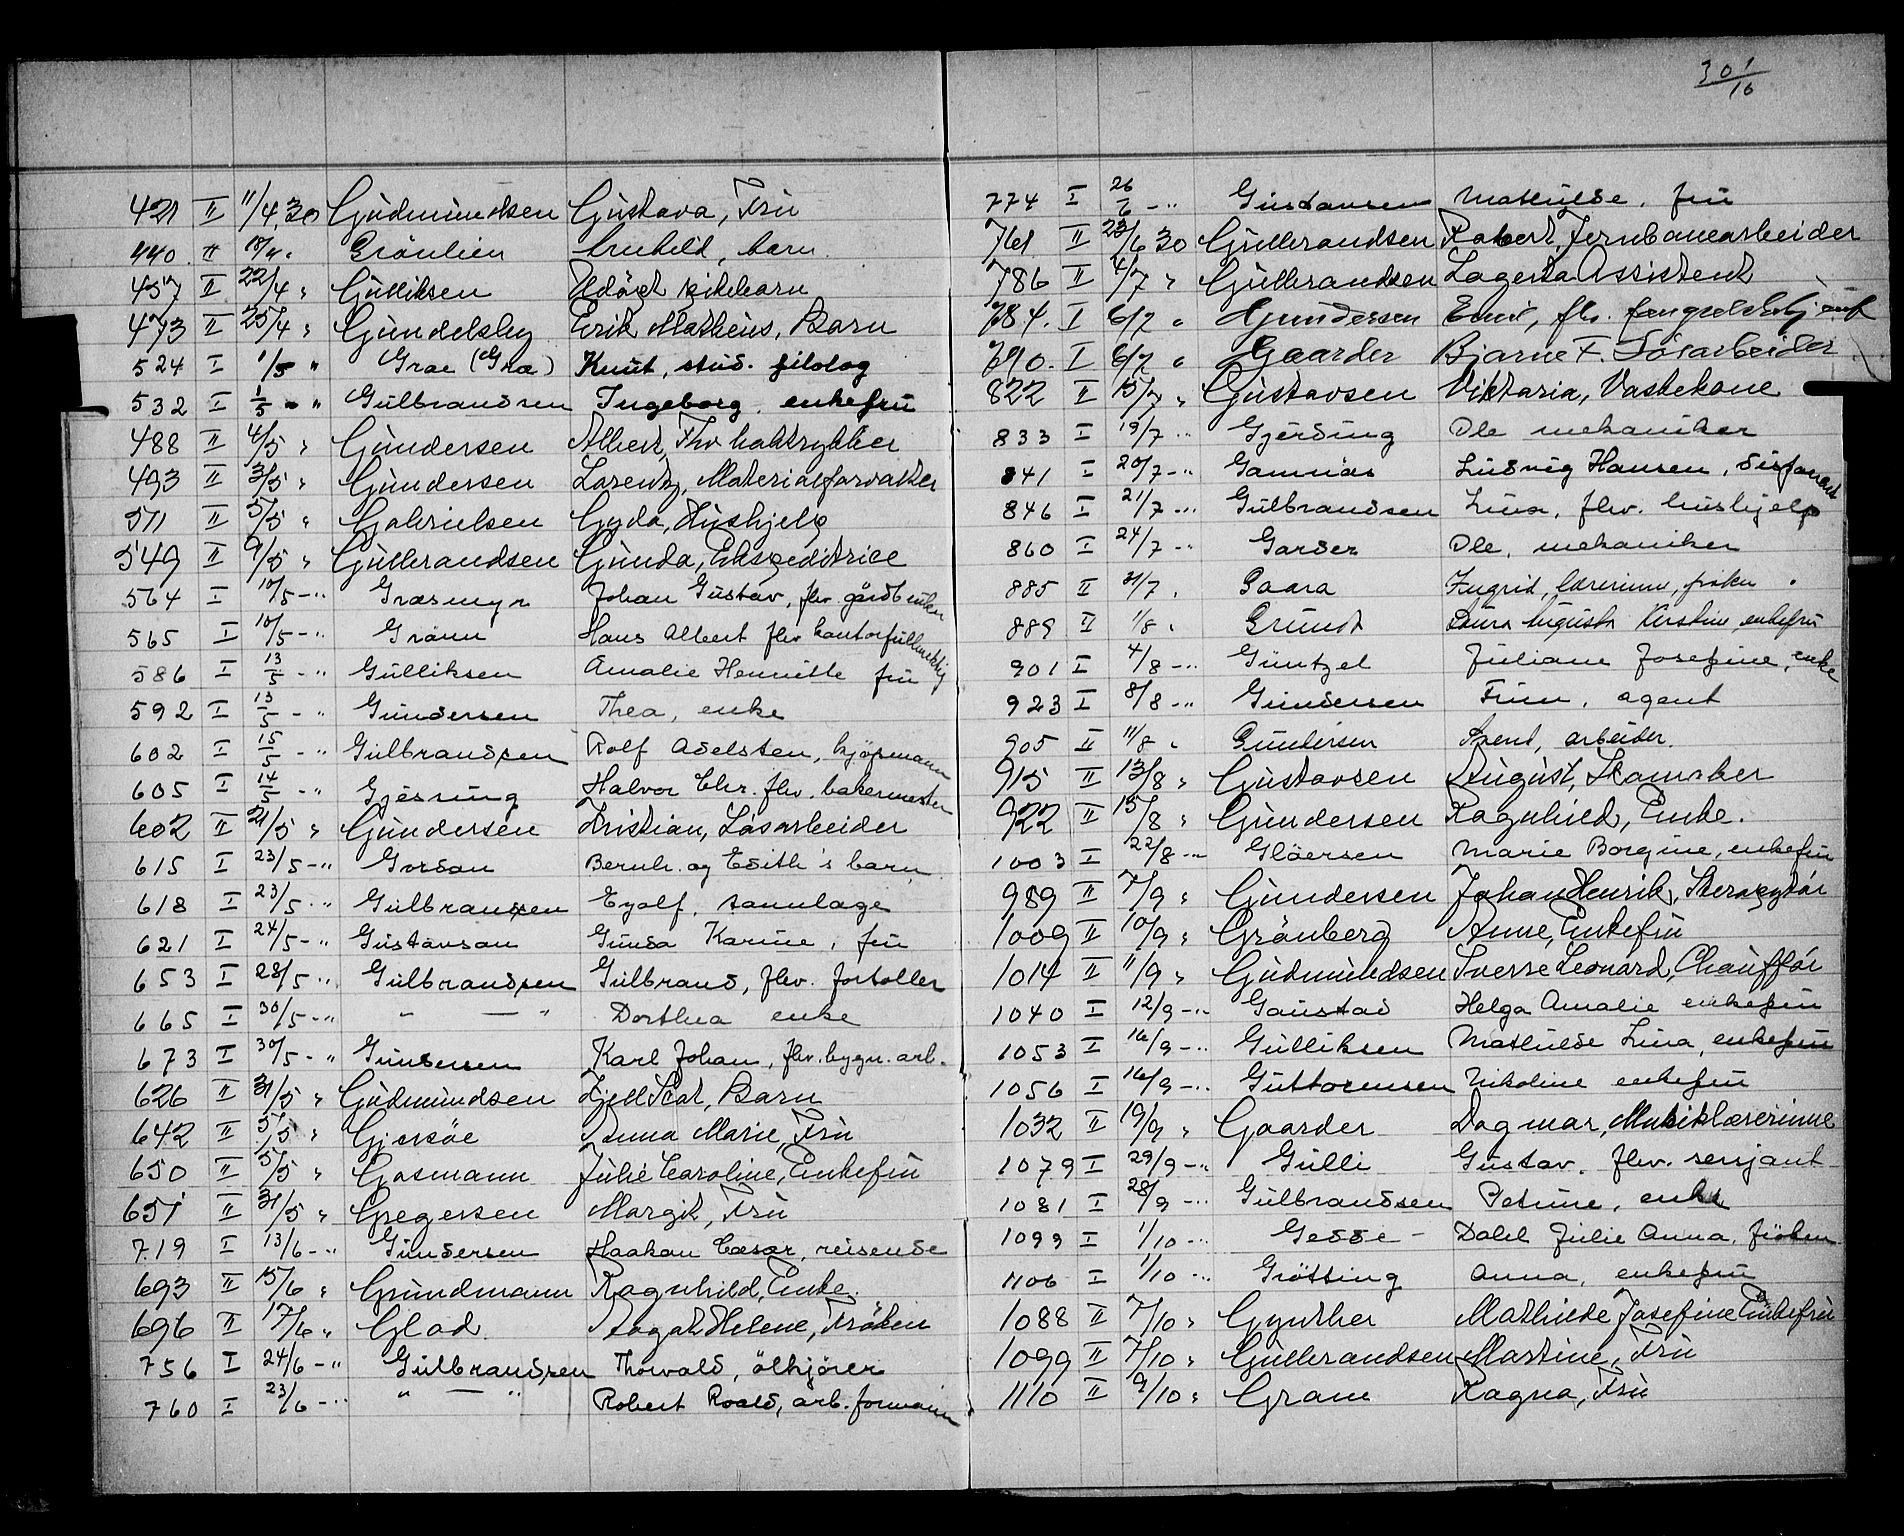 30 1/10
421 II 11/4 30 Gudmundsen Gustava, Fru
440 II 18/4 " Grönlien Arnhild, barn
457 II 22/4 " Gulliksen Udöpt pikebarn
473 II 25/4 " Gundelsby Erik Matheus, Barn
524 I 1/5 " Grae (Græ) Knut, stud. filolog
532 I 1/5 - " Gulbrandsen Ingeborg, enkefru
488 II 4/5 " Gundersen Albert, Fhv boktrykker
493 II 3/5 " Gundersen Lorentz, Materialforvalter
511 II 5/5 " Gabrielsen Gyda, Hushjelp
549 II 9/5 " Gulbrandsen Gunda, Ekspeditrice
564 I 10/5 - " Græsmyr Johan Gustav, fhv gårdbruker
565 I 10/5 - " Grönn Hans Albert fhv kontorfullmektig
586 I 13/5 - " Gulliksen Amalie Henriette fru
592 I 13/5 - " Gundersen Thea, enke
602 I 15/5 - " Gulbrandsen Rolf Adelsten, kjöpmann
605 I 14/5 - " Gjesring Halvor Chr. fhv. bakermester
602 II 21/5 " Gundersen Kristian, Løsarbeider
615 I 23/5 - " Gordon Bernh. og Edith's barn
618 I 23/5 - " Gulbransen Eyolf, tannlæge
621 I 24/5 - " Gustavson Gunda Karine, fru
653 I 28/5 - " Gulbrandsen Gulbrand, fhv. fortoller
665 I 30/5 - " " — " Dorthea enke
673 I 30/5 - " Gundersen Karl Johan, fhv. bygn. arb.
626 II 31/5 " Gudmundsen Kjell Scot, Barn
642 II 5/5 " Gjersöe Anna Marie, Fru
650 II 5/5 " Gosmann Julie Caroline, Enkefru
651 II 31/5 " Gregersen Margit, Fru
719 I 13/6 - " Gundersen Haakon Cæsar, reisende
693 II 15/6 " Grundmann Ragnhild, Enke.
696 II 17/6 " Glad Aagot Helene, Fröken
756 I 24/6 - " Gulbrandsen Thorvald, ölkjörer
760 I 23/6 - " " — " Robert Roald, arb. formann
774 I 26/6 - " Gustavsen Mathilde, fru
761 II 23/6 30 Gulbrandsen Robert, Jernbanearbeider
786 II 4/7 " Gulbrandsen Lagerta Assistent
784. I 6/7 " Gundersen Emil, fhv.
790. I 6/7 " Gaarder Bjarne F. Løsarbeider
822 II 15/7 " Gustavsen Viktoria, Vaskekone
833 I 19/7 " Gjerding Ole mekaniker
841 I 20/7 - " Gamnäs Ludvig Hansen, disponent
846 I 21/7 - " Gulbrandsen Lina, fhv. hushjelp
860 I 24/7 - " Garder Ole, mekaniker
885 II 31/7 " Gaara Ingrid, lærerinne, frøken
889 II 1/8 " Grundt Laura Augusta Kirstine, enkefru
901 I 4/8 - " Güntzel Juliane Josefine, enke
923 I 8/8 - " Gundersen Finn, agent
905 II 11/8 " Gundersen Svend, arbeider.
915 II 13/8 " Gustavsen August, Skomaker
922 II 15/8 " Gundersen Ragnhild, Enke.
1003 I 22/8 - " Glöersen Marie Borgine, enkefru
989 II 7/9 " Gundersen Johan Henrik, Sterotypör
1009 II 10/9 " Grönberg Anne, Enkefru
1014 II 11/9 " Gudmundsen Sverre Leonard, Chaufför
1040 I 12/9 - " Gaustad Helga Amalie enkefru
1053 I 16/9 - " Gulliksen Mathilde Lina, enkefru
1056 I 16/9 - " Guttormsen Nikoline enkefru
1032 II 19/9 " Gaarder Dagmar, Musiklærerinne
1079 I 29/9 - " Gulli Gustav. fhv. sersjant
1081 I 28/9 - " Gulbrandsen Petrine, enke
1099 I 1/10 - " Gedde - Dahl Julie Anna, fröken
1106 I 1/10 - " Grötting Anna, enkefru
1088 II 7/10 " Gynther Mathilde Josefine Enkefru
1099 II 7/10 " Gulbrandsen Martine, Fru
1110 II 9/10 " Gram Ragna, Fru